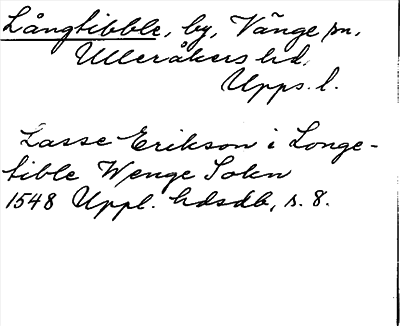 Långtibble, by, Vänge sn,
Ulleråkers hd.
Upps. l.
Lasse Erikson i Longe-
tible Wenge Sokn
1548 Uppl. hdsdb, s. 8.